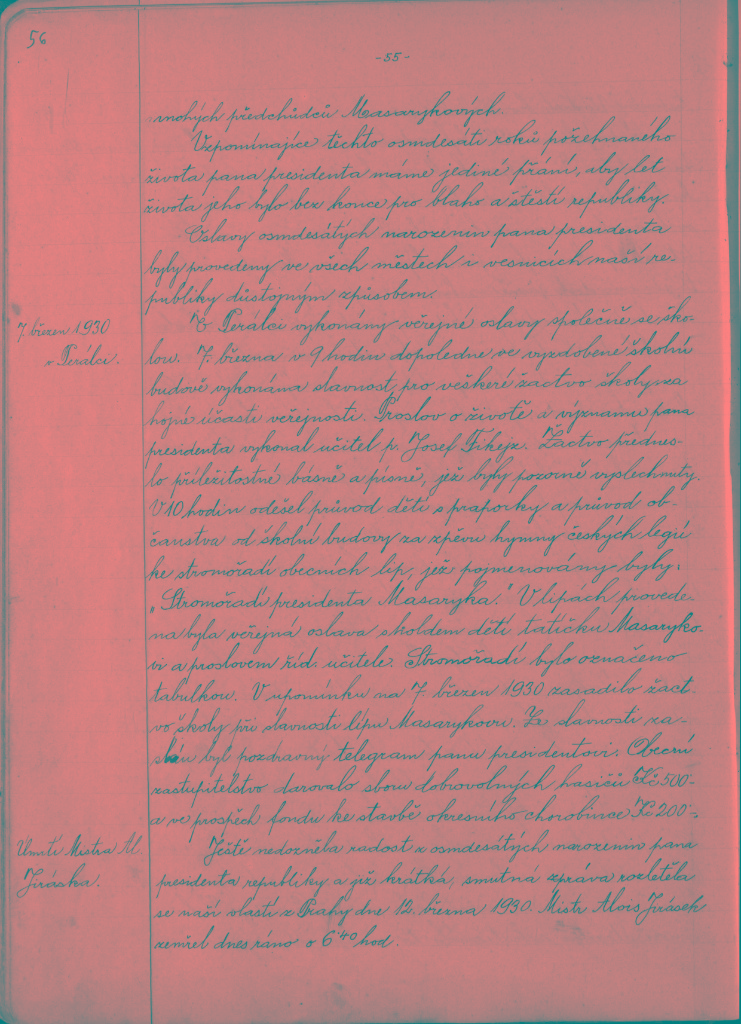 56
-55-
mnohých předchůdců Masarykových.
Vzpomínajíce těchto osmdesáti roků požehnaného
života pana presidenta máme jediné přání, aby let
života jeho bylo bez konce pro blaho a štěstí republiky.
Oslavy osmdesátých narozenin pana presidenta
byly provedeny ve všech městech i vesnicích naší re-
publiky důstojným způsobem.
7. březen 1930
v Perálci.
V Perálci vykonány veřejné oslavy společně se ško-
lou. 7. března v 9 hodin dopoledne ve vyzdobené školní
budově vykonána slavnost pro veškeré žactvo školy za
hojné účasti veřejnosti. Proslov o životě a významu pana
presidenta vykonal učitel p. Josef Fikejz. Žactvo přednes-
lo příležitostné básně a písně, jež byly pozorně vyslechnuty.
V 10 hodin odešel průvod dětí s praporky a průvod ob-
čanstva od školní budovy za zpěvu hymny českých legií
ke stromořadí obecních lip, jež pojmenovány byly:
"Stromořadí presidenta Masaryka." V lipách provede-
na byla veřejná oslava skoldem dětí tatíčku Masaryko-
vi a proslovem říd. učitele. Stromořadí bylo označeno
tabulkou. V upomínku na 7. březen 1930 zasadilo žact-
vo školy při slavnosti lípu Masarykovu. Ze slavnosti za-
slán byl pozdravný telegram panu presidentovi. Obecní
zastupitelstvo darovalo sboru dobrovolných hasičů Kč 500-
a ve prospěch fondu ke stavbě okresního chorobince Kč 200-.
Úmrtí Mistra Al.
Jiráska.
Ještě nedozněla radost z osmdesátých narozenin pana
presidenta republiky a již krátká, smutná zpráva rozletěla
se naší vlastí z Prahy dne 12. března 1930. Mistr Alois Jirásek
zemřel dnes ráno o 6·40 hod.